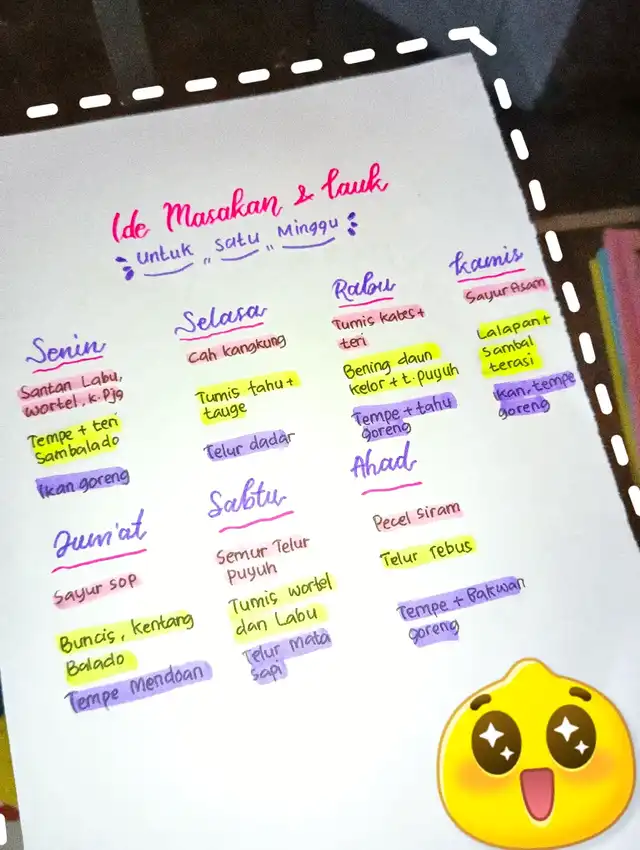 Ide Masakan & lauk
untuk satu Minggu
Senin
Santan Labu,
wortel, k.pjg
Tempe + teri
Sambalado
Ikan goreng
Selasa
Cah kangkung
Tumis tahu +
tauge
Telur dadar
Rabu
Tumis kates +
teri
Bening daun
kelor + t. puyuh
Tempe + tahu
goreng
kamis
Sayur Asam
Lalapan +
Sambal
terasi
Ikan, tempe
goreng
Jum'at
Sayur sop
Buncis, kentang
Balado
Tempe Mendoan
Sabtu
Semur Telur
Puyuh
Tumis wortel
dan Labu
Telur Mata
Sapi
Ahad
Pecel Siram
Telur rebus
Tempe + Bakwan
goreng